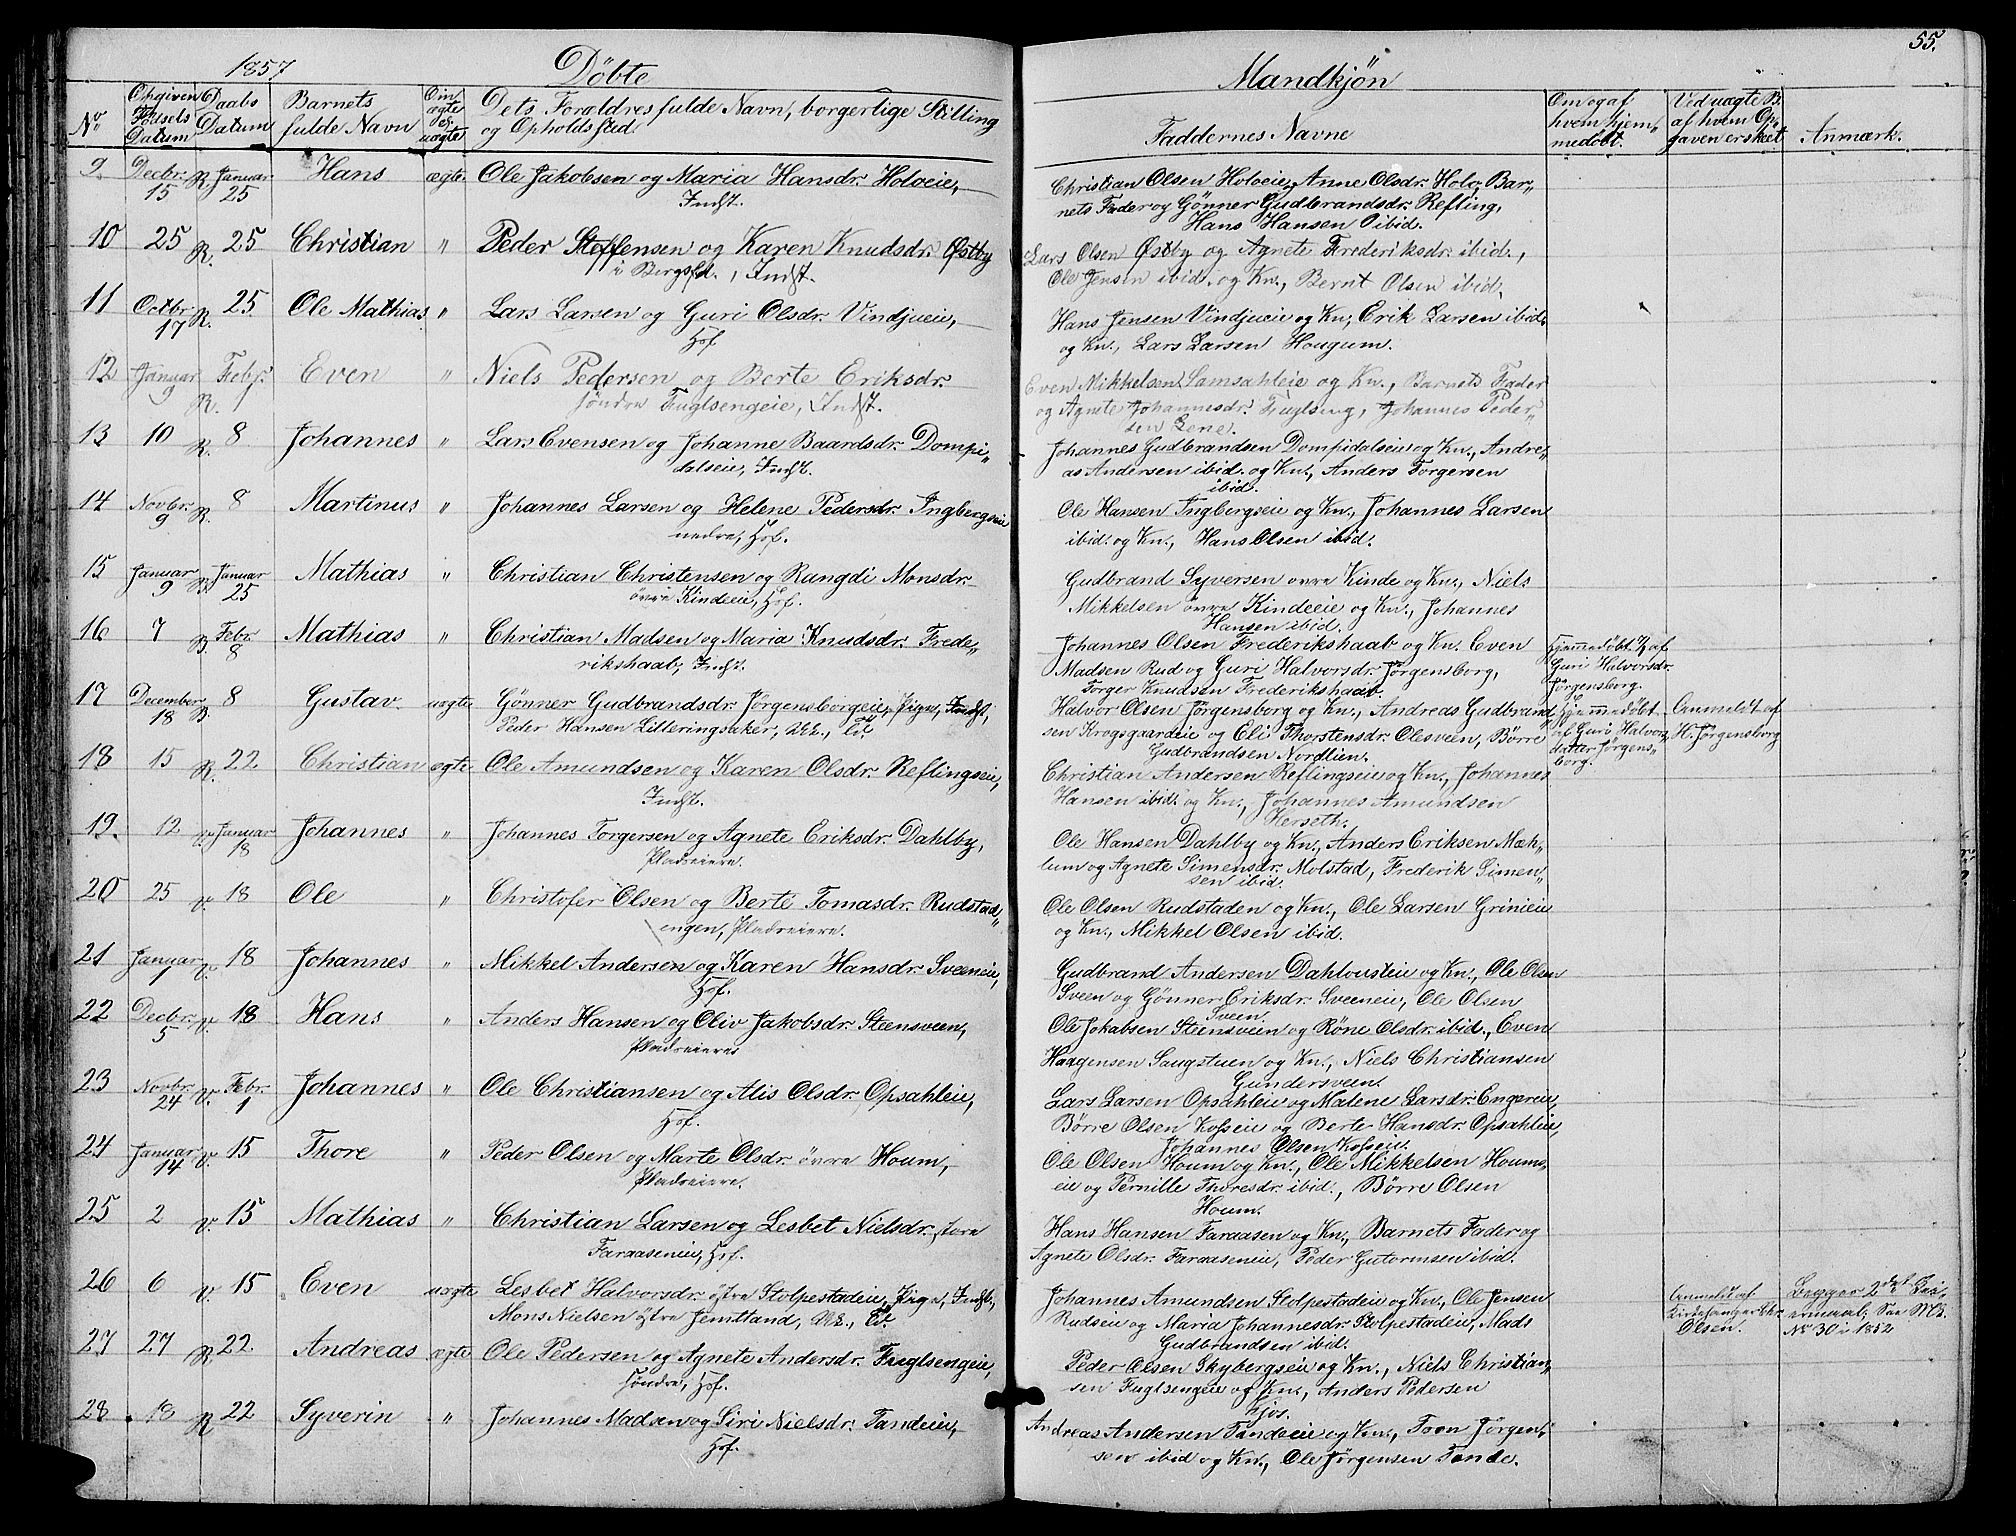 1857 Döbte
Nº
Opgiven Födsels Datum
Daabs Datum
Barnets fulde Navn
Om ægte el. uægte
Dets Forældres fulde Navn, borgerlige Stilling
og Opholdssted
9. Decbr. 15 R. Januar 25 Hans ægte. Ole Jakobsen og Maria Hansdr. Holoeie,
Indst.
10 25 R. 25 Christian " Peder Steffensen og Karen Knudsdr. Østby
i Bergsed., Indst.
11 Octbr. 17 R. 25 Ole Mathias " Lars Larsen og Guri Olsdr. Vindjueie,
Hof.
12 Januar 9 R. Febr. 1 Even " Niels Pedersen og Berte Eriksdr.
søndre Fuglsengeie, Indst.
13 10 R. 8 Johannes " Lars Evensen og Johanne Baardsdr. Dompi„
dalseie, Indst.
14 Novbr. 9 R. 8 Martinus " Johannes Larsen og Helene Pedersdr. Ingbergseie
nedre, Hof.
15 Januar 9 B. Januar 25 Mathias " Christian Christensen og Rangdi Monsdr.
övre Kindeeie, Hof.
16 7 B. Febr. 8 Mathias " Christian Madsen og Maria Knudsdr. Frede„
rikshaab, Indst.
17 December 18 B. 8 Gustav uægte Gönner Gudbrandsdr. Jörgensborgeie, Pige, Indst,
Peder Hansen Lilleringsaker, Uk., Et.
18 15 R. 22 Christian ægte Ole Amundsen og Karen Olsdr. Reflingseie,
Indst.
19. 12 v. Januar 18 Johannes " Johannes Torgersen og Agnete Eriksdr. Dahlby,
Pladseiere.
20 25 v. 18 Ole " Christofer Olsen og Berte Tomasdr. Rudstad„
engen, Pladseiere.
21 Januar 1 v. 18 Johannes " Mikkel Andersen og Karen Hansdr. Sveeneie,
Hof.
22 Decbr. 5 v. 18 Hans " Anders Hansen og Oliv Jakobsdr. Steensveen,
Pladseiere
23 Novbr. 24 v. Febr. 1 Johannes " Ole Christiansen og Alis Olsdr. Opsahleie,
Hof.
24 Januar 14 v. 15 Thore " Peder Olsen og Marte Olsdr. övre Houm,
Pladseiere.
25 2 v. 15 Mathias " Christian Larsen og Lesbet Nielsdr. store
Faraaseneie, Hof.
26 6 v. 15 Even uægte Lesbet Halvorsdr. østre Stolpestadeie, Pige, Indst.,
Mons Nielsen østre Jemtland, Uk., Et.
27 27 R. 22. Andreas ægte Ole Pedersen og Agnete Andersdr. Fuglsengeie,
söndre, Hof.
28. 18 R 22 Syverin " Johannes Madsen og Siri Nielsdr. Tandeeie,
Hof.
Mandkjön 55.
Faddernes Navne
Om og af hvem hjem„ medöbt.
Ved uægte B. af hvem Op„ gaven er skeet
Anmærk.
Christian Olsen Holoeie, Anne Olsdr. Holo, Bar„
nets Fader og Gönner Gudbrandsdr. Refling,
Hans Hansen ibid.
Lars Olsen Østby og Agnete Frederiksdr. ibid.,
Ole Jensen ibid. og Kn., Bernt Olsen ibid.
Hans Jensen Vindjueie og Kn., Erik Larsen ibid.
og Kn., Lars Larsen Hougum.
Even Mikkelsen Samsahleie og Kn., Barnets Fader
og Agnete Johannesdr. Fuglseng, Johannes Peder„
sen Lene.
Johannes Gudbrandsen Dompidalseie og Kn., Andre„
as Andersen ibid. og Kn., Anders Torgersen
ibid.
Ole Hansen Ingbergseie og Kn., Johannes Larsen
ibid. og Kn., Hans Olsen ibid.
Gudbrand Syversen övre Kinde og Kn., Niels
Mikkelsen övre Kindeeie og Kn., Johannes
Hansen ibid.
Johannes Olsen Frederikshaab og Kn. Even
Madsen Rud og Guri Halvorsdr. Jörgensborg,
Torger Knudsen Frederikshaab.
Hjemmedöbt af
Guri Halvorsdr.
Jörgensborg.
Halvor Olsen Jörgensborg og Kn., Andreas Gudbrand„
sen Krogsgaardeie og Eli Thorstensdr. Olesveen, Börre
Gudbrandsen Nordlien.
Hjemmedöbt
af Guri Halvors„
datter Jörgens„
borg.
Anmeldt af
H. Jörgensborg
Christian Andersen Reflingseie og Kn., Johannes
Hansen ibid. og Kn., Johannes Amundsen
Kerseth.
Ole Hansen Dahlby og Kn., Anders Eriksen Mæh„
lum og Agnete Simensdr. Molstad, Frederik Simen„
sen ibid.
Ole Olsen Rudstaden og Kn., Ole Larsen Grinieie
og Kn., Mikkel Olsen ibid.
Gudbrand Andersen Dahlousteie og Kn., Ole Olsen
Sveen og Gönner Eriksdr. Sveeneie, Ole Olsen
Sveen.
Ole Jokabsen Steensveen og Röne Olsdr. ibid., Even
Haagensen Saugstuen og Kn., Niels Christiansen
Gundersveen.
Lars Larsen Opsahleie og Malene Larsdr. Engereie,
Börre Olsen Kosseie og Berte Hansdr. Opsahleie,
Johannes Olsen Kosseie.
Ole Olsen Houm og Kn., Ole Mikkelsen Houms„
eie og Pernille Thoresdr. ibid., Börre Olsen
Houm.
Hans Hansen Faraasen og Kn., Barnets Fader og
Agnete Olsdr. Faraaseneie, Peder Gutormsen ibid.
Johannes Amundsen Stolpestadeie og Kn., Ole Jensen
Rudsen og Maria Johannesdr. Stolpestadeie, Mads
Gudbrandsen ibid.
Anmeldt af
Kirkesanger Chr.
Olsen.
Begges 2det Lei„
ermaal. See Mb.
No 30 i 1852
Peder Olsen Skybergseie og Kn., Niels Christian„
sen Fuglsengeie og Kn., Anders Pedersen
Kjos.
Andreas Andersen Tandeeie og Kn., Toon Jörgen„
sen ibid og Kn., Ole Jörgensen Tande.